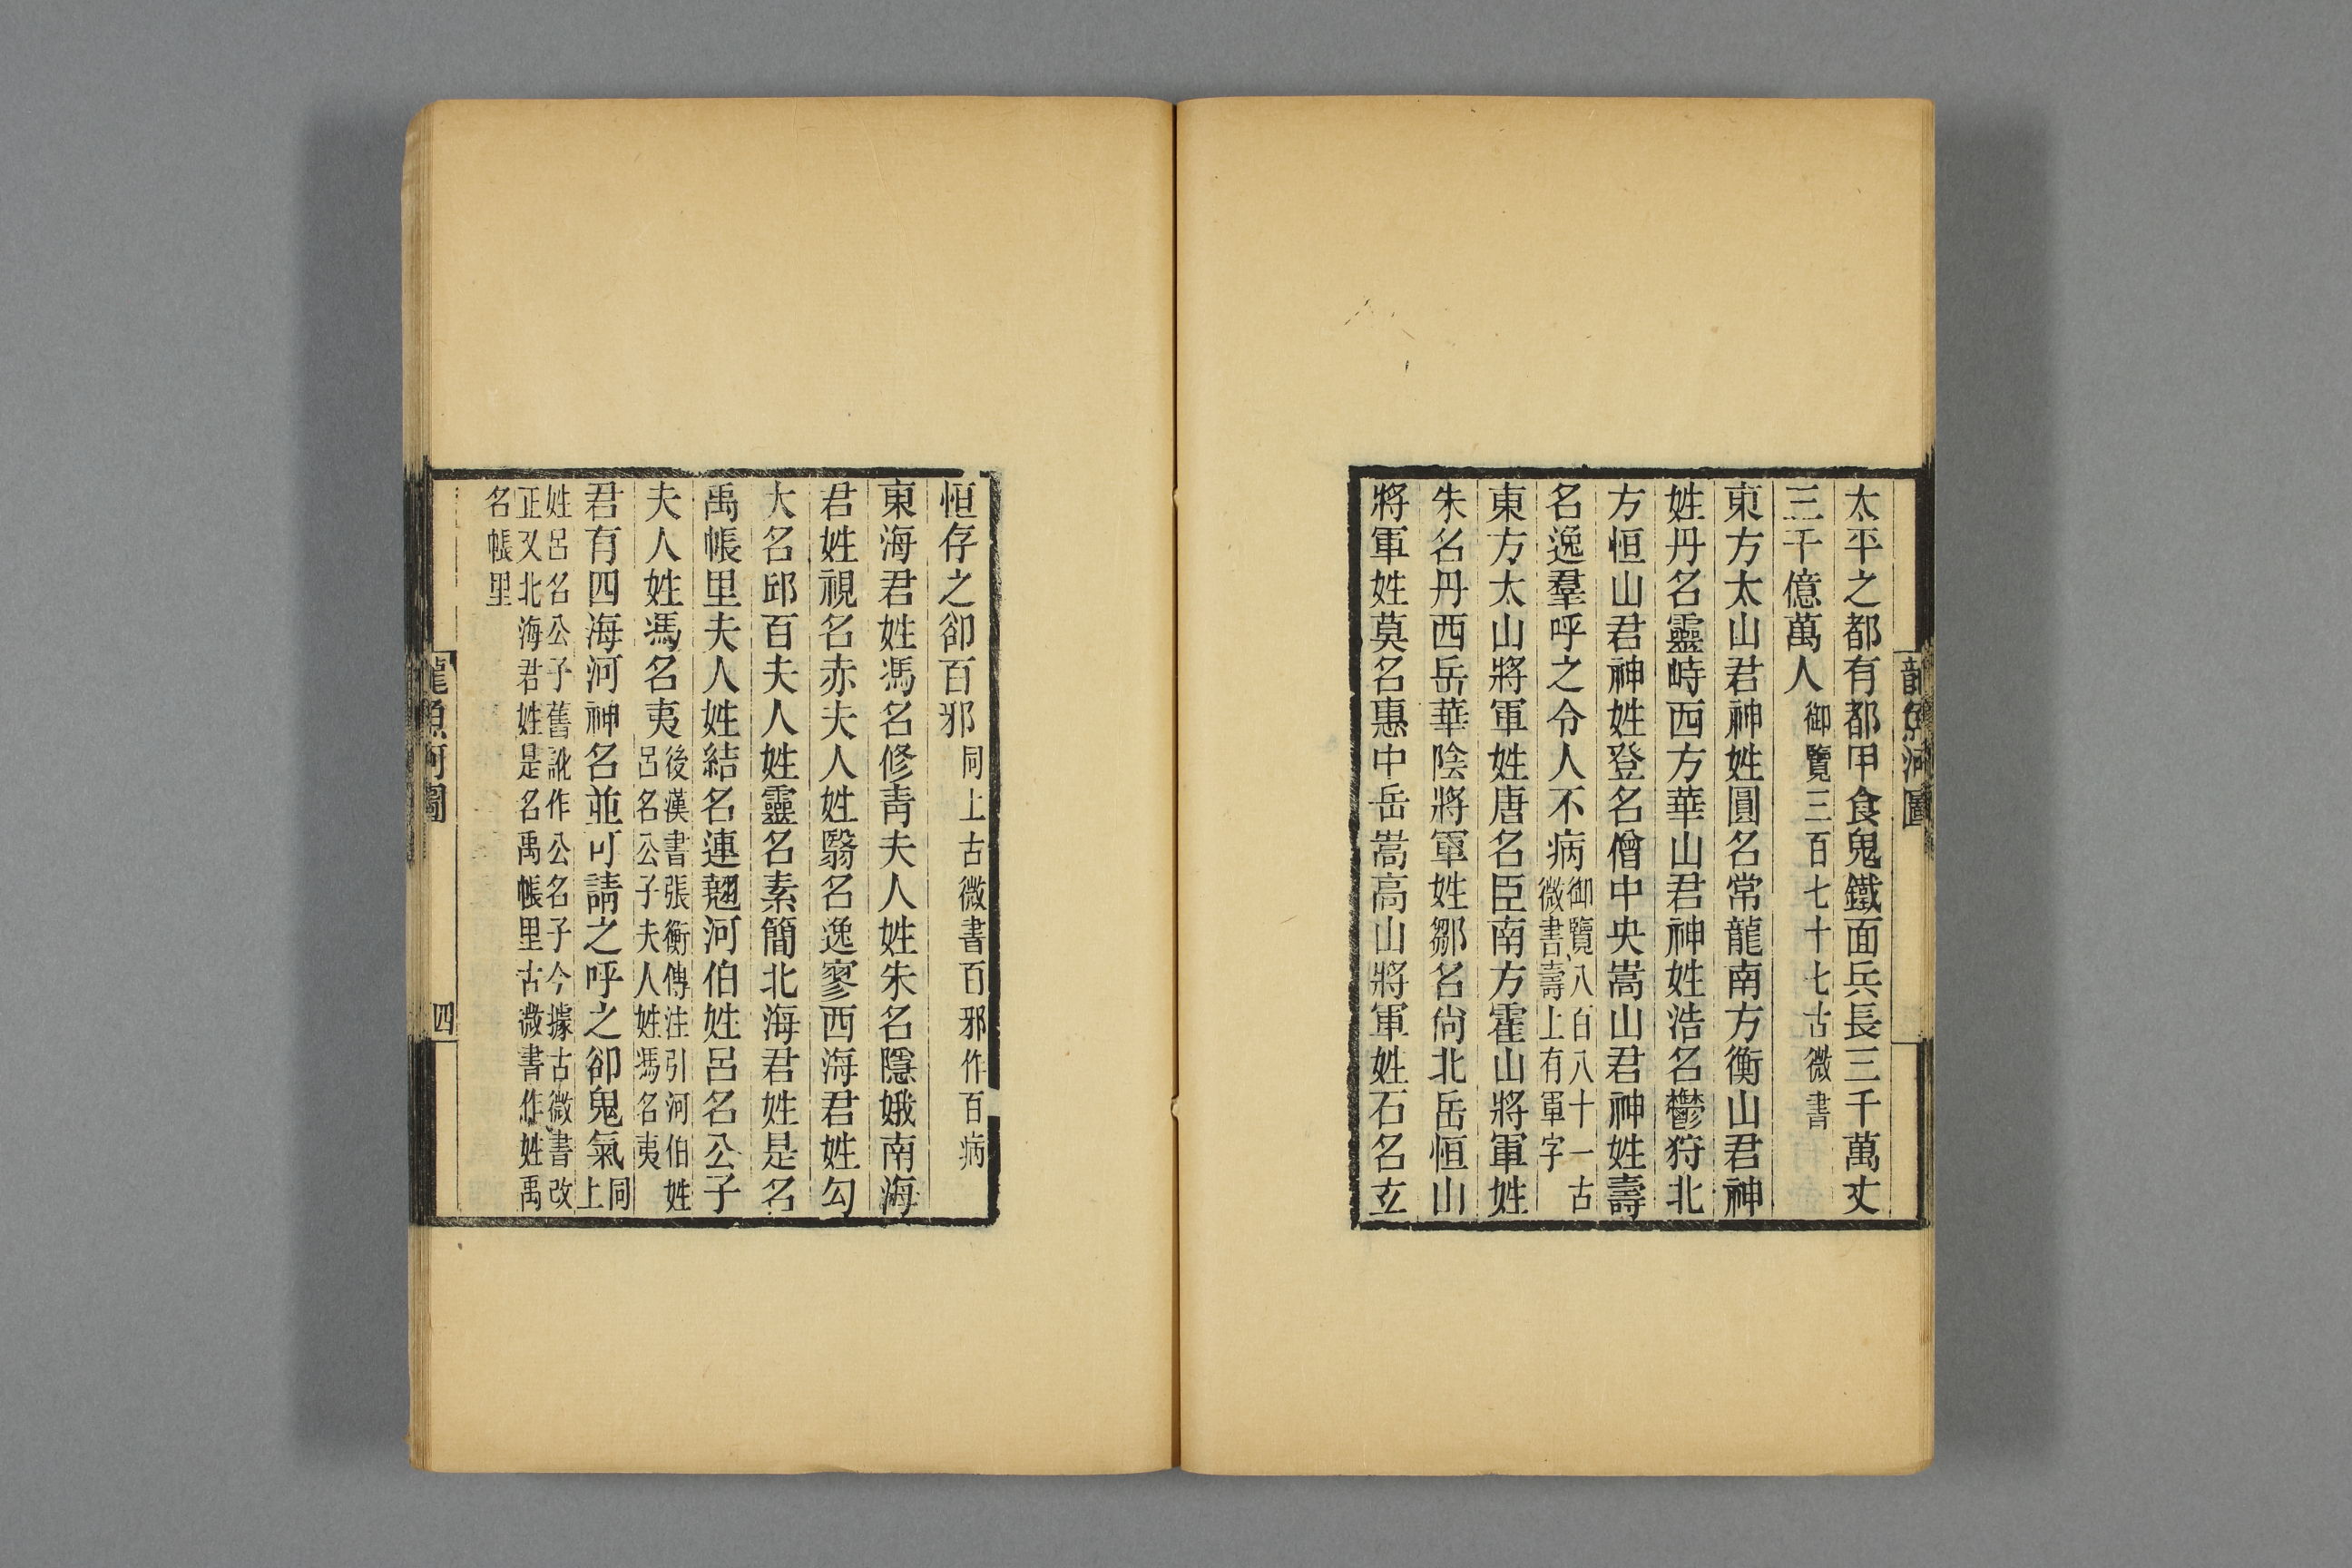 龍魚河圖
太平之都有都甲食鬼鐵面兵長三千萬丈
三千億萬人御覽三百七十七古微書
東方太山君神姓圓名常龍南方衡山君神
姓丹名靈峙西方華山君神姓浩名鬱狩北
方恒山君神姓登名僧中央嵩山君神姓壽
名逸羣呼之令人不病御覽八百八十一古
微書壽上有軍字
東方太山將軍姓唐名臣南方霍山將軍姓
朱名丹西岳華陰將軍姓鄒名尙北岳恒山
將軍姓莫名惠中岳嵩高山將軍姓石名玄
恒存之卻百邪同上古微書百邪作百病
東海君姓馮名修靑夫人姓朱名隱娥南海
君姓視名赤夫人姓翳名逸寥西海君姓勾
大名邱百夫人姓靈名素簡北海君姓是名
禹帳里夫人姓結名連翹河伯姓呂名公子
夫人姓馮名夷後漢書張衡傳注引河伯姓
呂名公子夫人姓馮名夷
君有四海河神名並可請之呼之卻鬼氣同
上
姓呂名公子舊訛作公名子今據古微書改
正又北海君姓是名禹帳里古微書作姓禹
名帳里
龍魚河圖
四